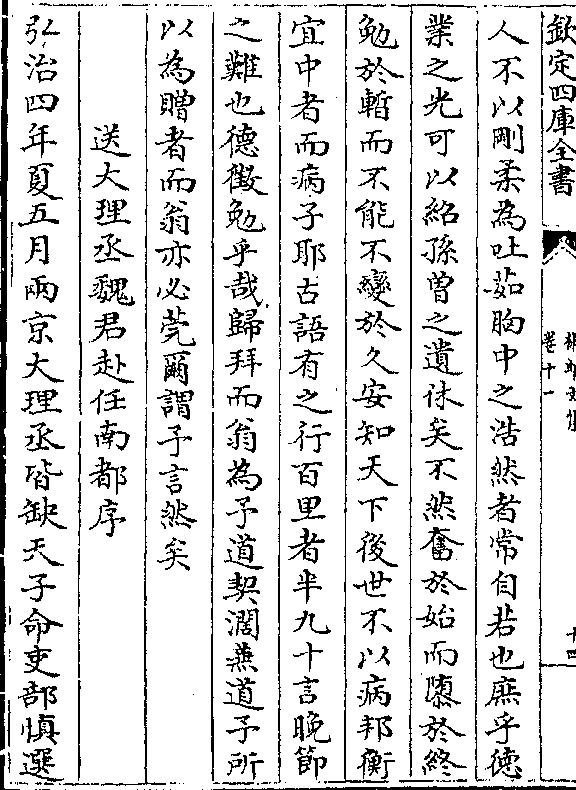 欽定四庫全書
卷十一
十四
人不以剛柔為吐茹胸中之浩然者常自若也庶乎德
業之光可以紹孫曽之遺休矣不然奮於始而隳於終
勉於暫而不能不變於久安知天下後世不以病邦衡
宜中者而病子耶古語有之行百里者半九十言晚節
之難也德徴勉乎哉歸拜而翁為予道契濶蕪道予所
以為贈者而翁亦必莞爾謂予言然矣
送大理丞魏君赴任南都序
弘治四年夏五月兩京大理丞皆缺天子命吏部慎選